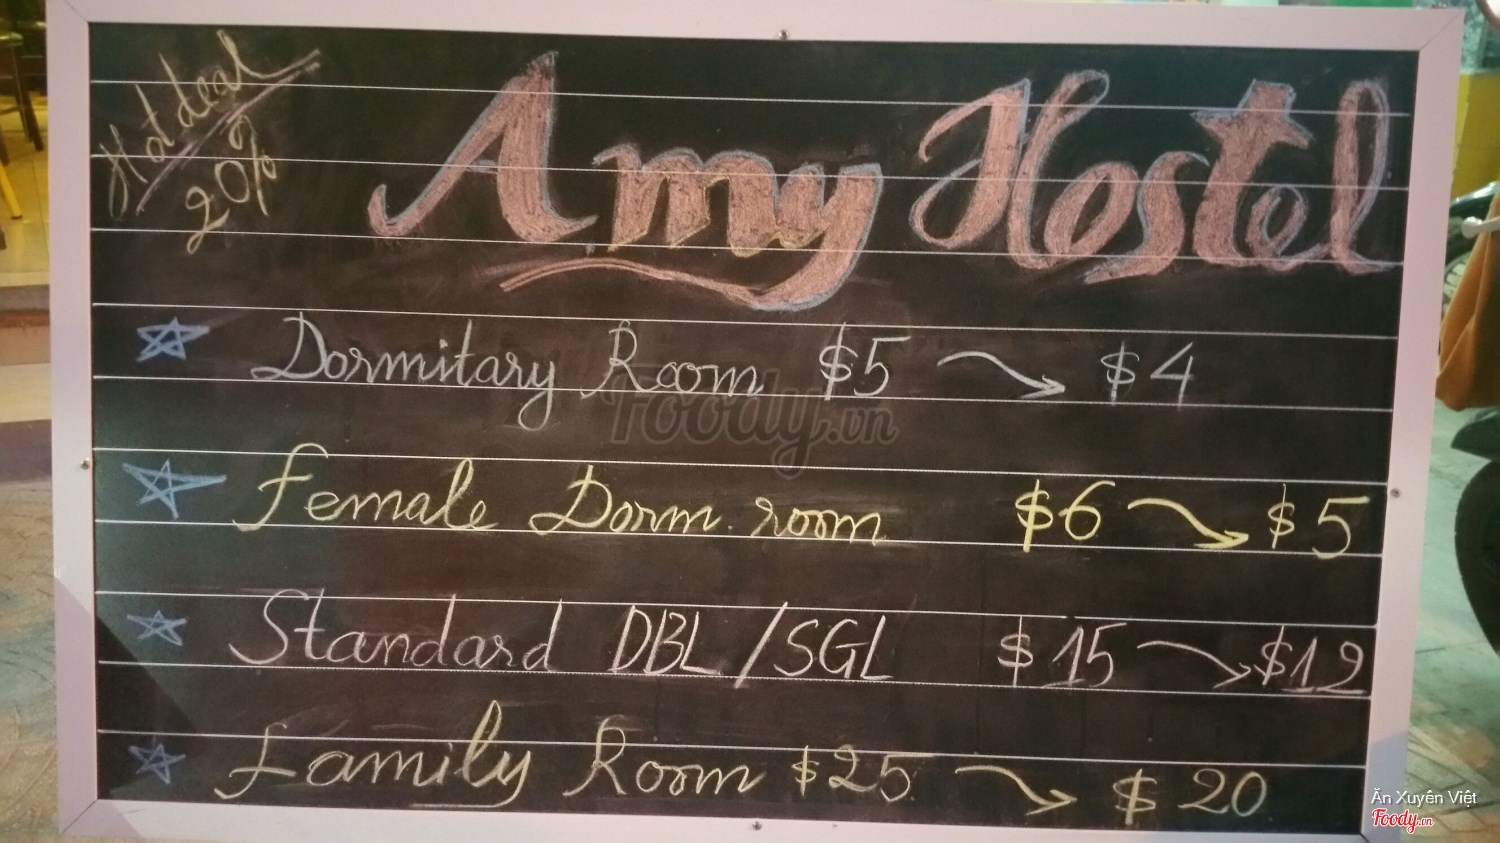 Hot deal
20%
Amy Hostel
Dormitary Room $5 $4
Female Dorm room $6 $5
Standard DBL/SGL $15 $12
Family Room $25 $20
Foody.vn
Ăn Xuyên Việt
Foody.vn